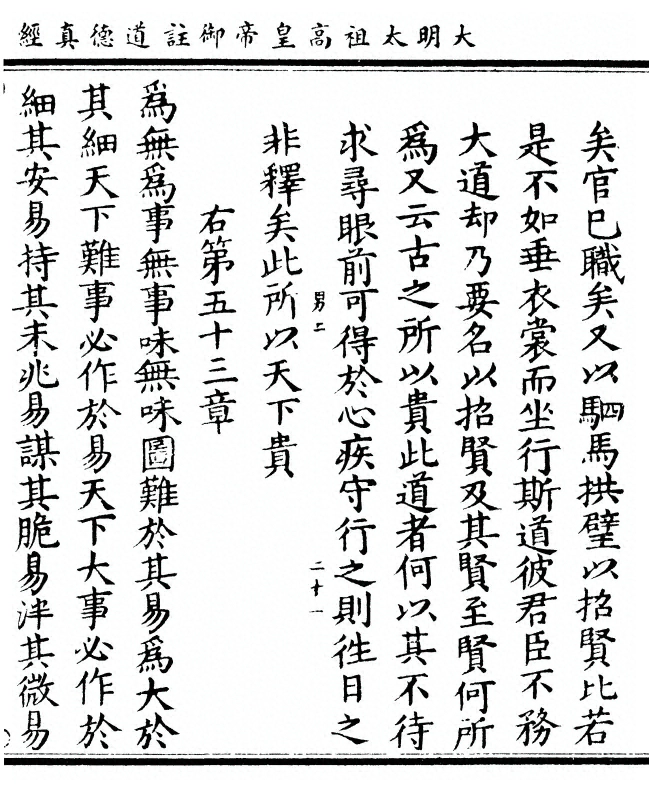 大明太祖高皇帝御註道德真經
矣官已職矣又以駟馬拱璧以招賢比若
是不如垂衣裳而坐行斯道彼君臣不務
大道却乃要名以招賢及其賢至賢何所
爲又云古之所以貴此道者何以其不待
求尋眼前可得於心疾守行之則徃日之
男二 二十一
非釋矣此所以天下貴
右第五十三章
爲無爲事無事味無味圖難於其易爲大於
其細天下難事必作於易天下大事必作於
細其安易持其未兆易謀其脆易泮其微易